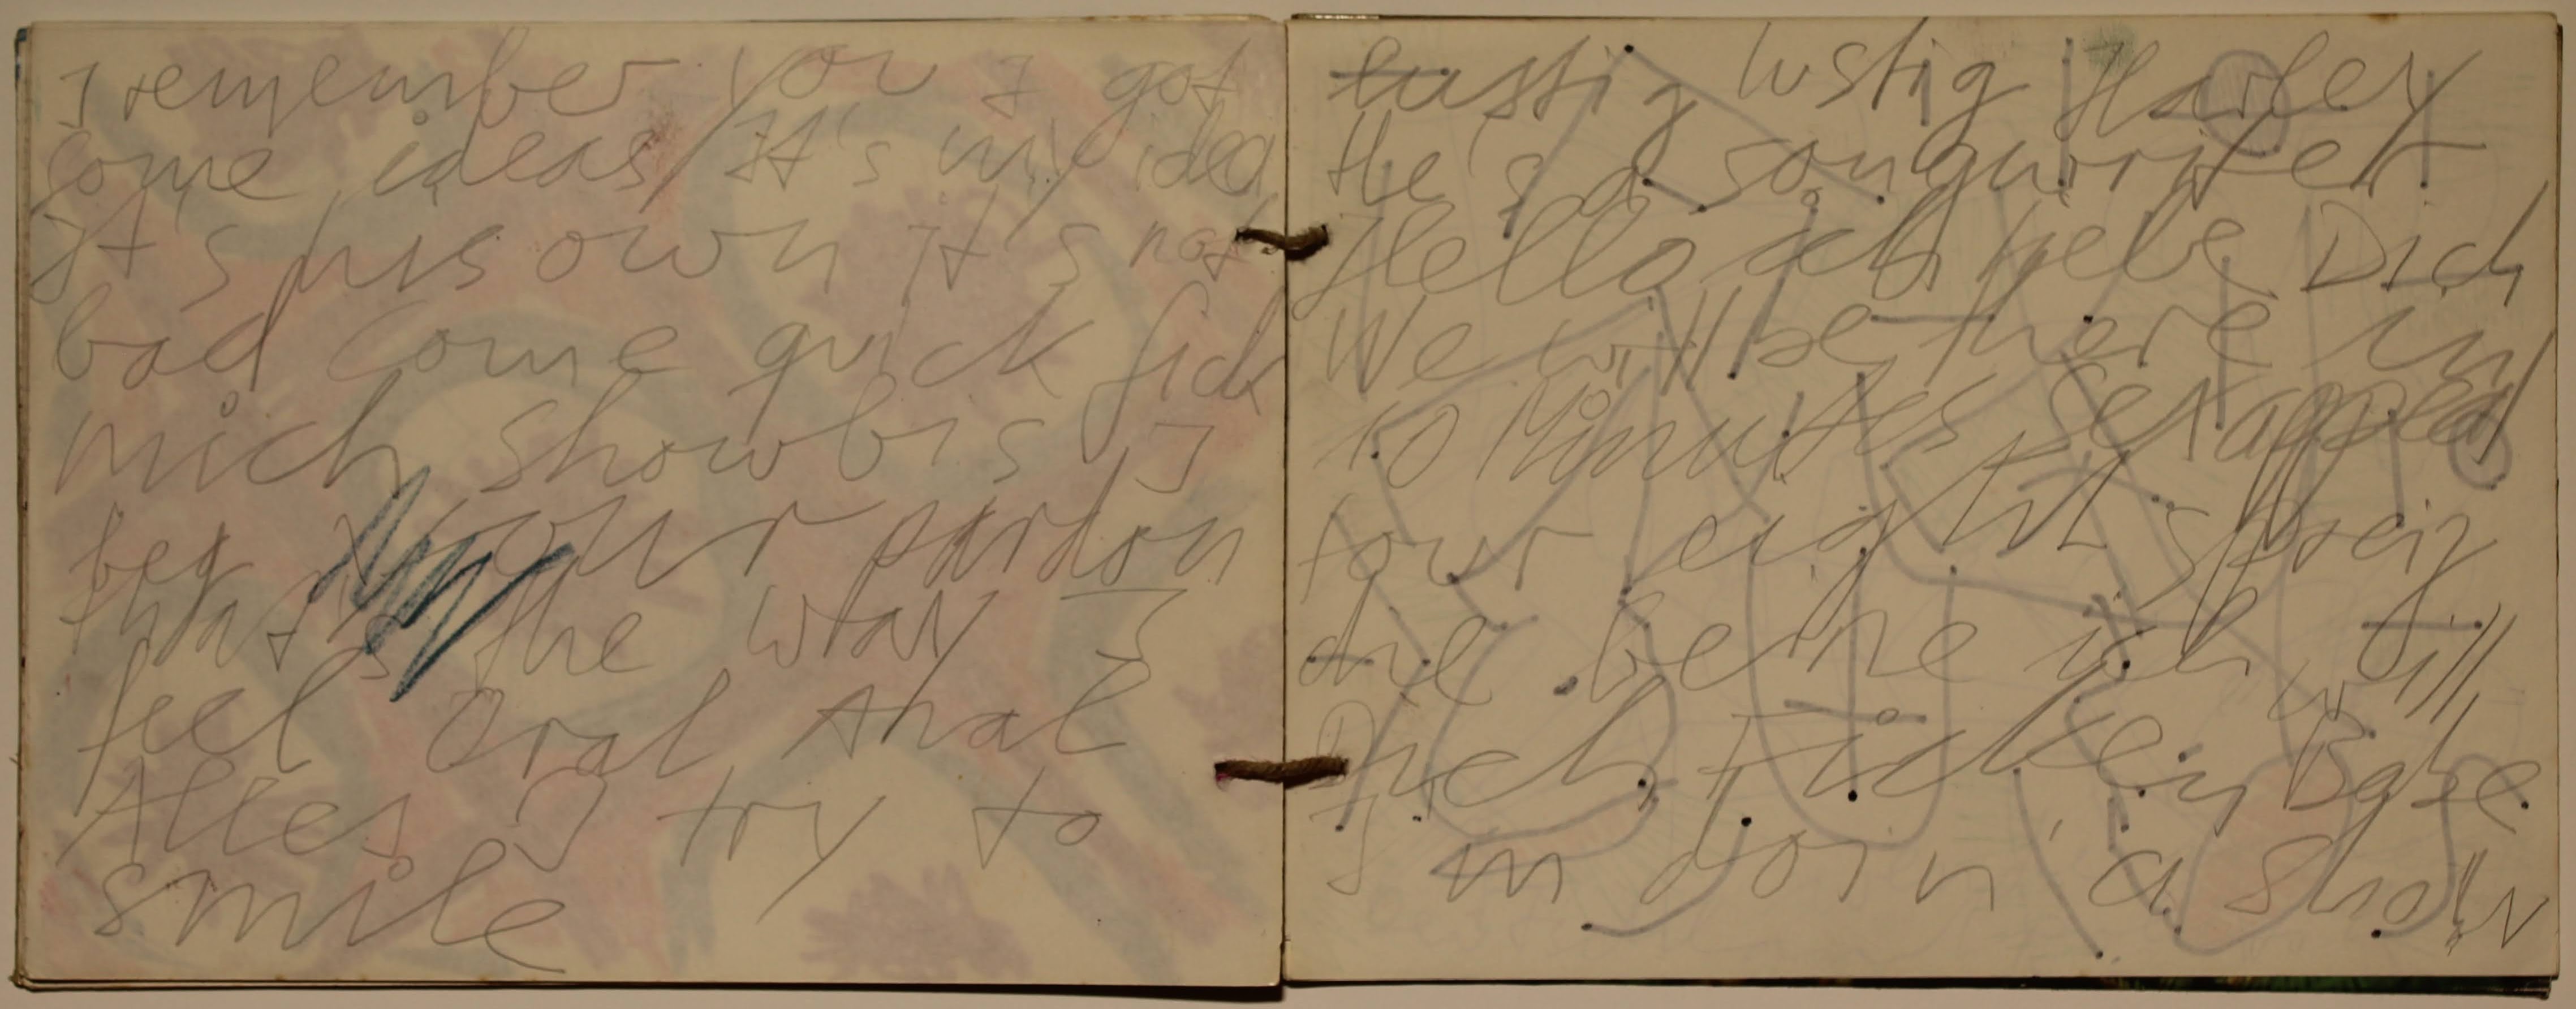 I remember you I got
some ideas It's my idea
It's his own It's not
bad come quick fick
mich showbis I
beg your pardon
that's the way I
feel Oral Anal
Alles I try to
smile
lustig lustig Harley
He's a songwriter
Hello ich liebe Dich
We will be there in
10 Minutes Sexappeal
four eight spreiz
die beine ich will
Dich Ficken Babe
I'm doin' a show